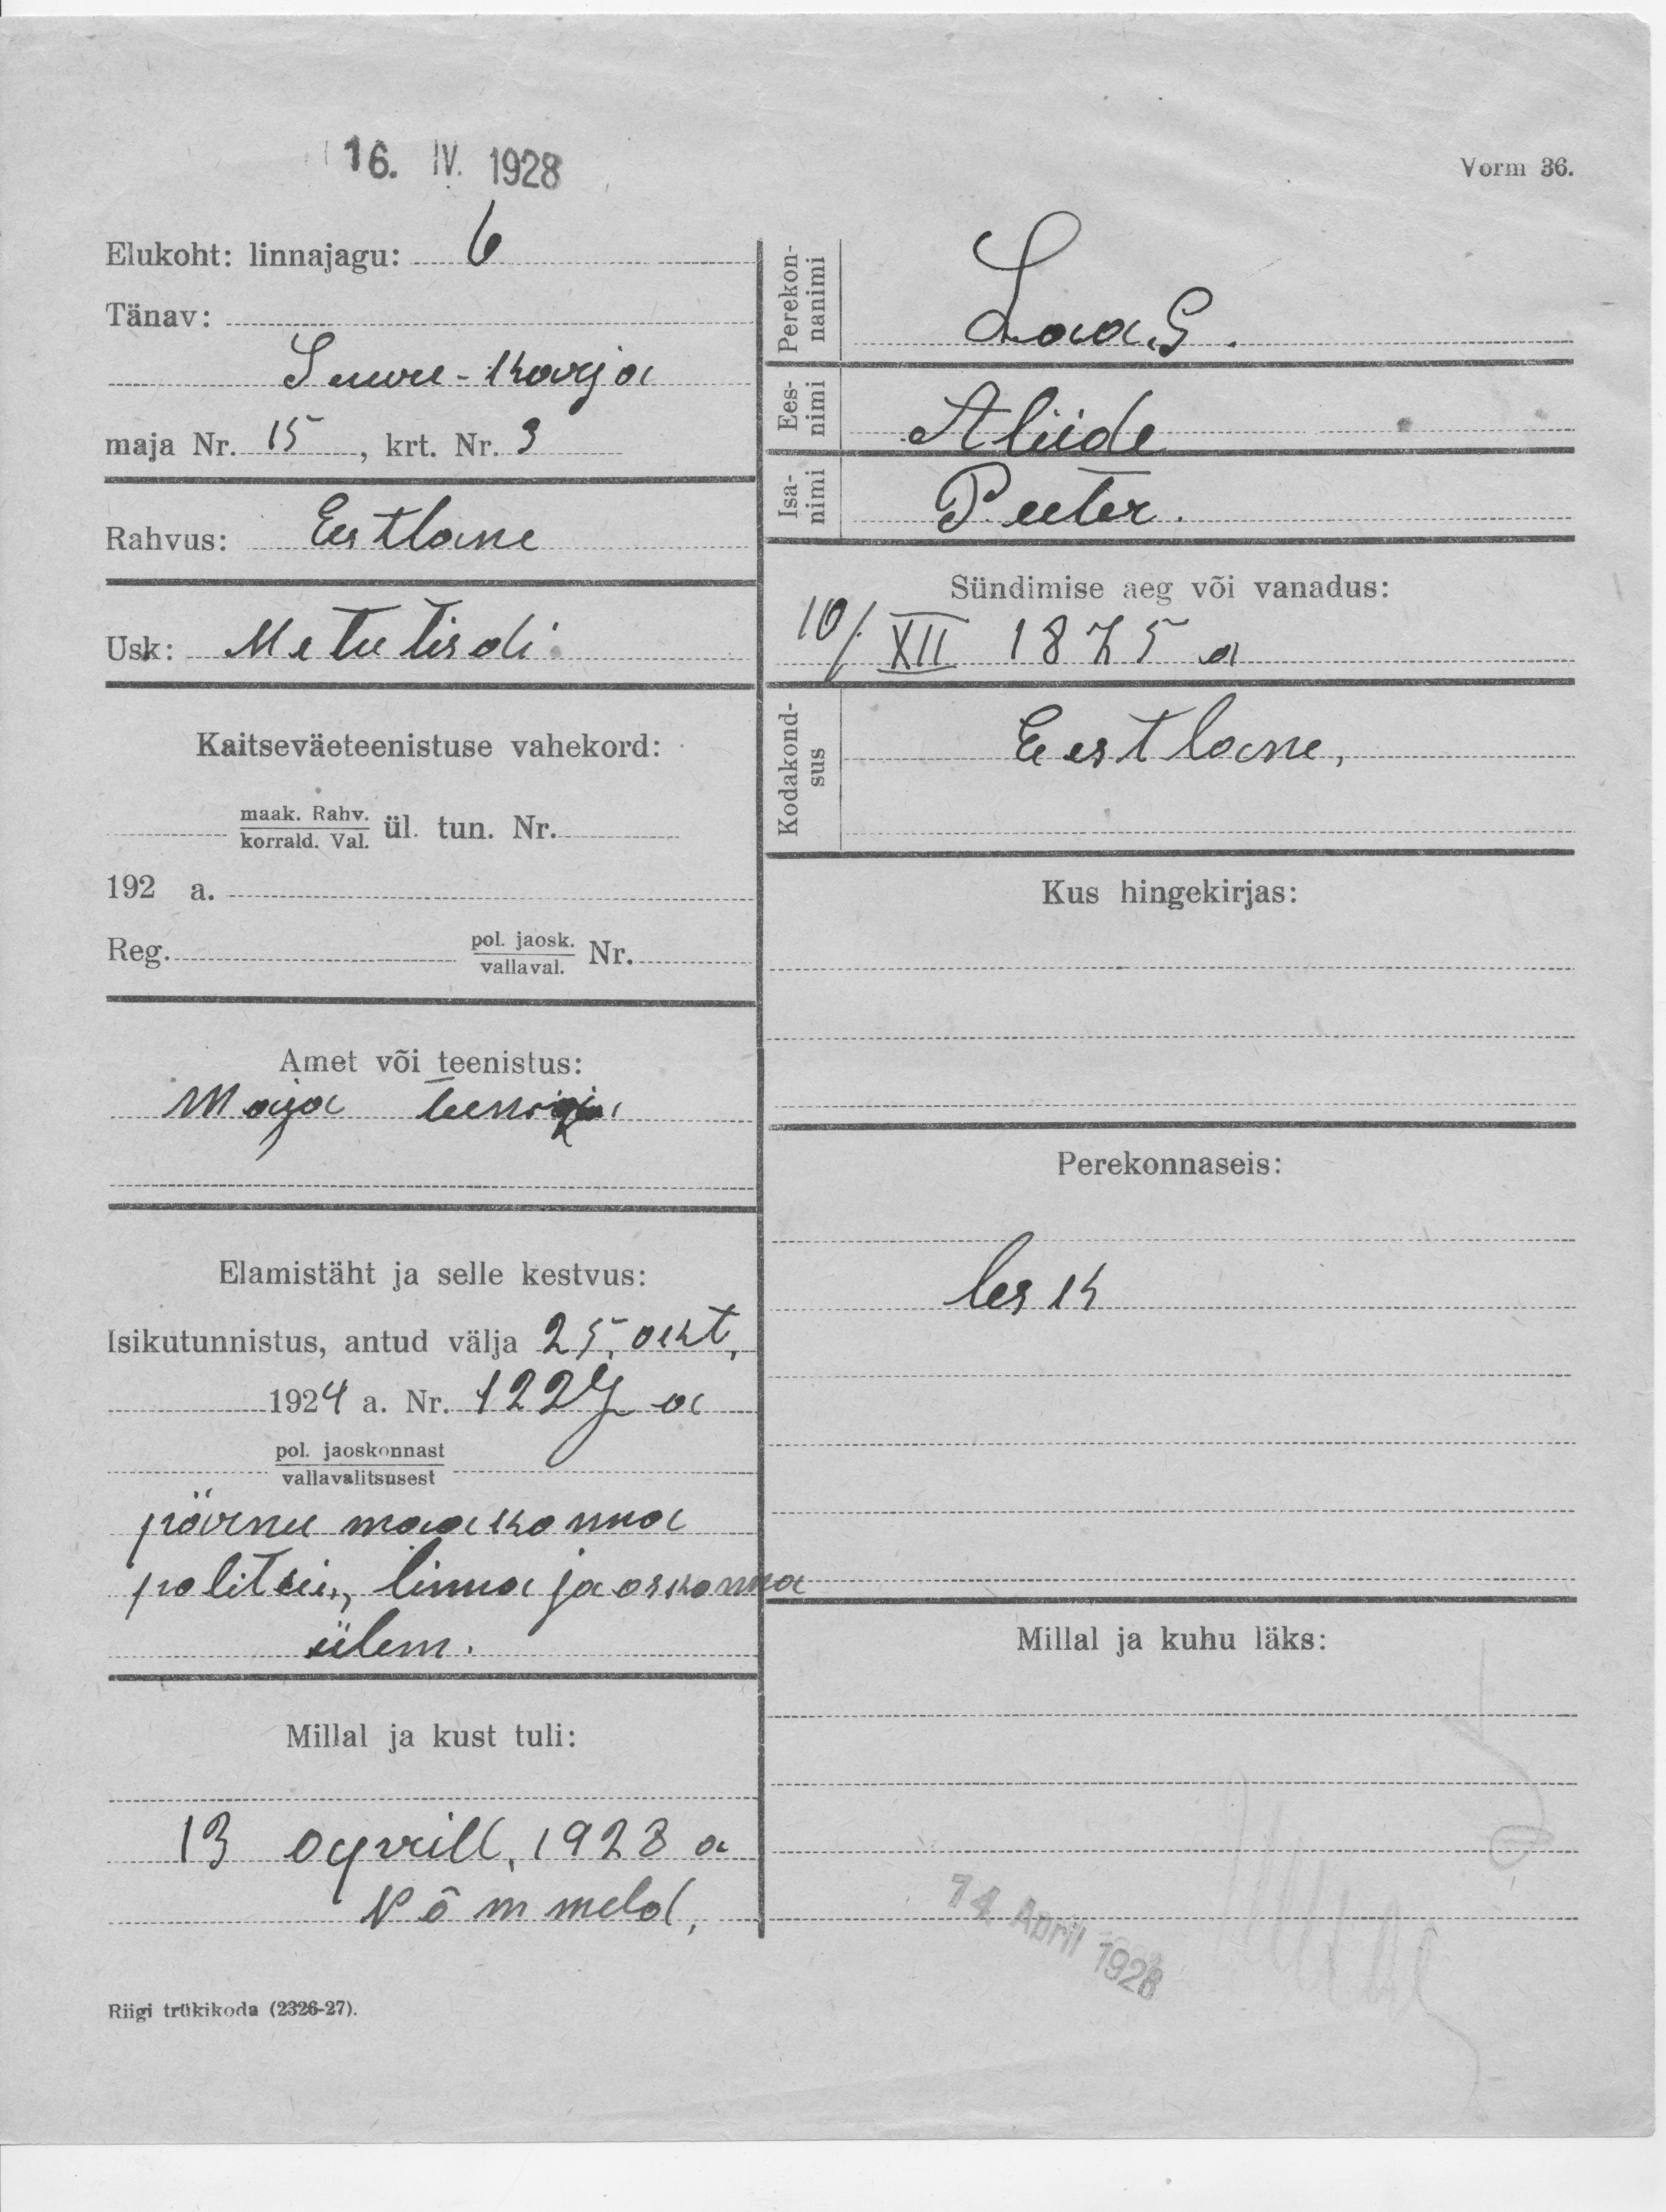 16. IV. 1928
Vorm 36.
Elukoht: linnajagu: 6
Tänav:
Suure-Karja
maja Nr. 15, krt. Nr. 3
Rahvus: Eestlane
Usk: Metutisdi
Kaitseväeteenistuse vahekord:
maak. Rahv.
korrald. Val. ül. tun. Nr.
192 a.
Reg. pol. jaosk.
vallaval. Nr.
Amet või teenistus:
Maja teenija
Elamistäht ja selle kestvus:
Isikutunnistus, antud välja 25, okt,
1924 a. Nr. 1227 a
pol. jaoskonnast
vallavalitsusest
pärnu maakonna
politsei, linna jaoskonna
ülem.
Millal ja kust tuli:
13 aprill, 1928 a
Nõmmelt,
Perekon-
nanimi
Laas.
Ees-
nimi
Aliide
Isa-
nimi
Peeter.
Sündimise aeg või vanadus:
10/XII 1875 a
Kodakond-
sus
Eestlane,
Kus hingekirjas:
Perekonnaseis:
lesk
Millal ja kuhu läks:
14 April 1928
Riigi trükikoda (2326-27).